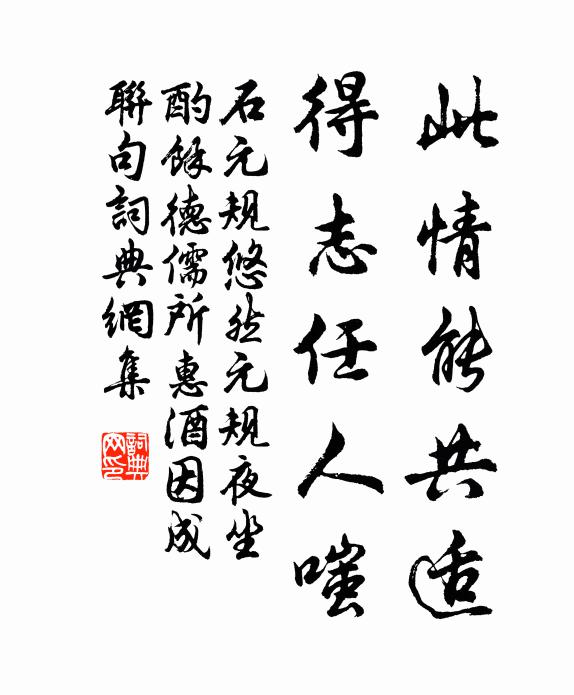 此情能共适
得志任人嗤
石元規悠然元規夜坐
酌餘德儒所惠酒因成
聯句詞典網集
詞典网印